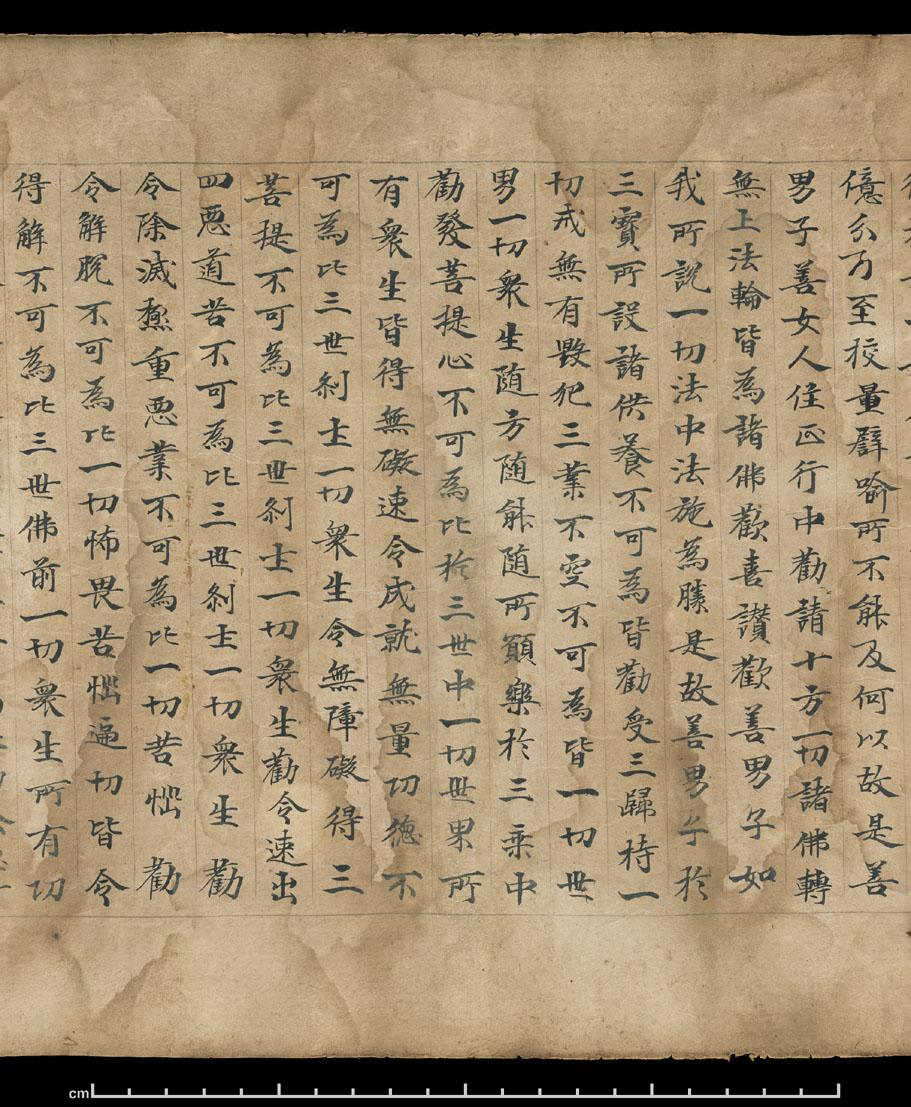 億分乃至挍量譬喻所不能及何以故是善
男子善女人住正行中勸請十方一切諸佛轉
無上法輪皆為諸佛歡喜讃歡善男子如
我所說一切法中法施為勝是故善男子於
三寶所設諸供養不可為皆勸受三歸持一
切戒無有毀犯三業不空不可為皆一切世
男一切衆生随方随能随所願樂於三乘中
勸發菩提心不可為比於三世中一切世界所
有衆生皆得無礙速令成就無量功德不
可為比三世剎土一切衆生令無障礙得三
菩提不可為比三世剎士一切衆生勸令速出
四惡道苦不可為比三世剎士一切衆生勸
令除滅極重惡業不可為比一切苦惱勸
令解脫不可為比一切怖畏苦惱逼切皆令
得解不可為比三世佛前一切衆生所有功
cm